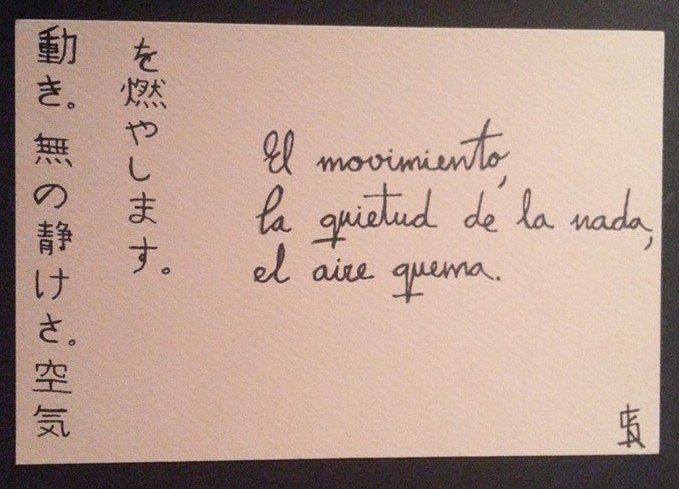 動き。無の静けさ。空気
を燃やします。
El movimiento,
la quietud de la nada,
el aire quema.